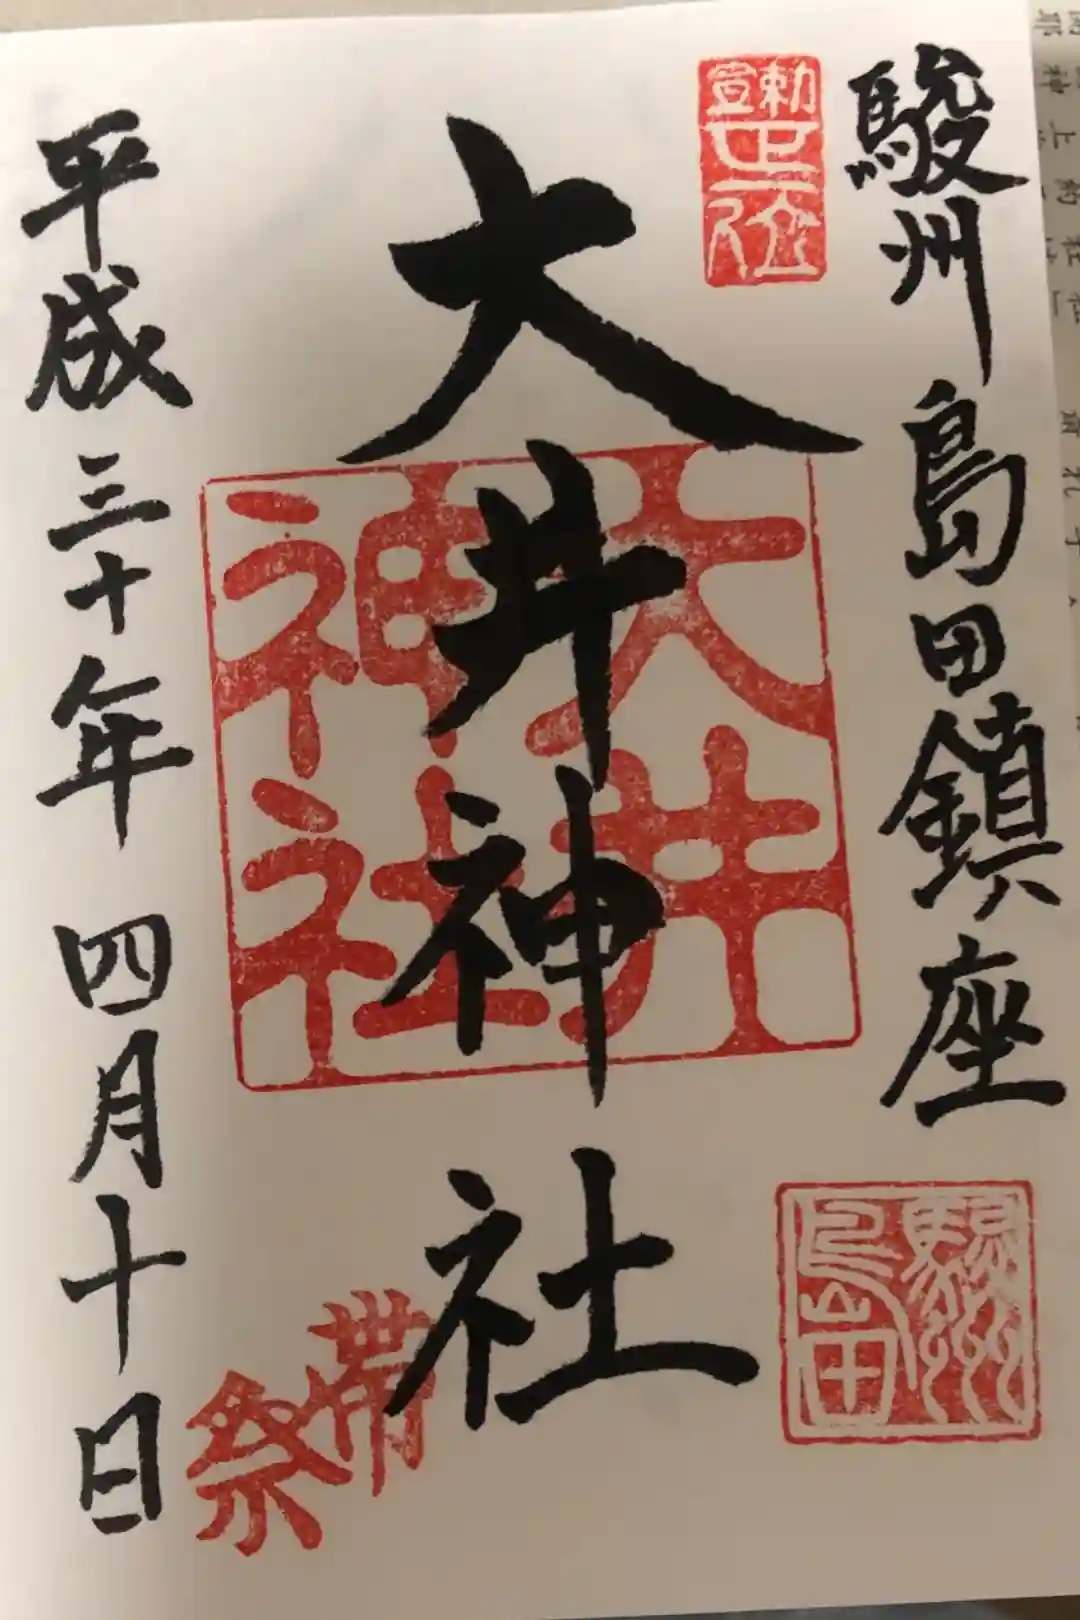 駿州 島田鎮座
勅宣
正一位
大井神社
大井
神社
駿州
島田
帯祭
平成三十年 四月十日